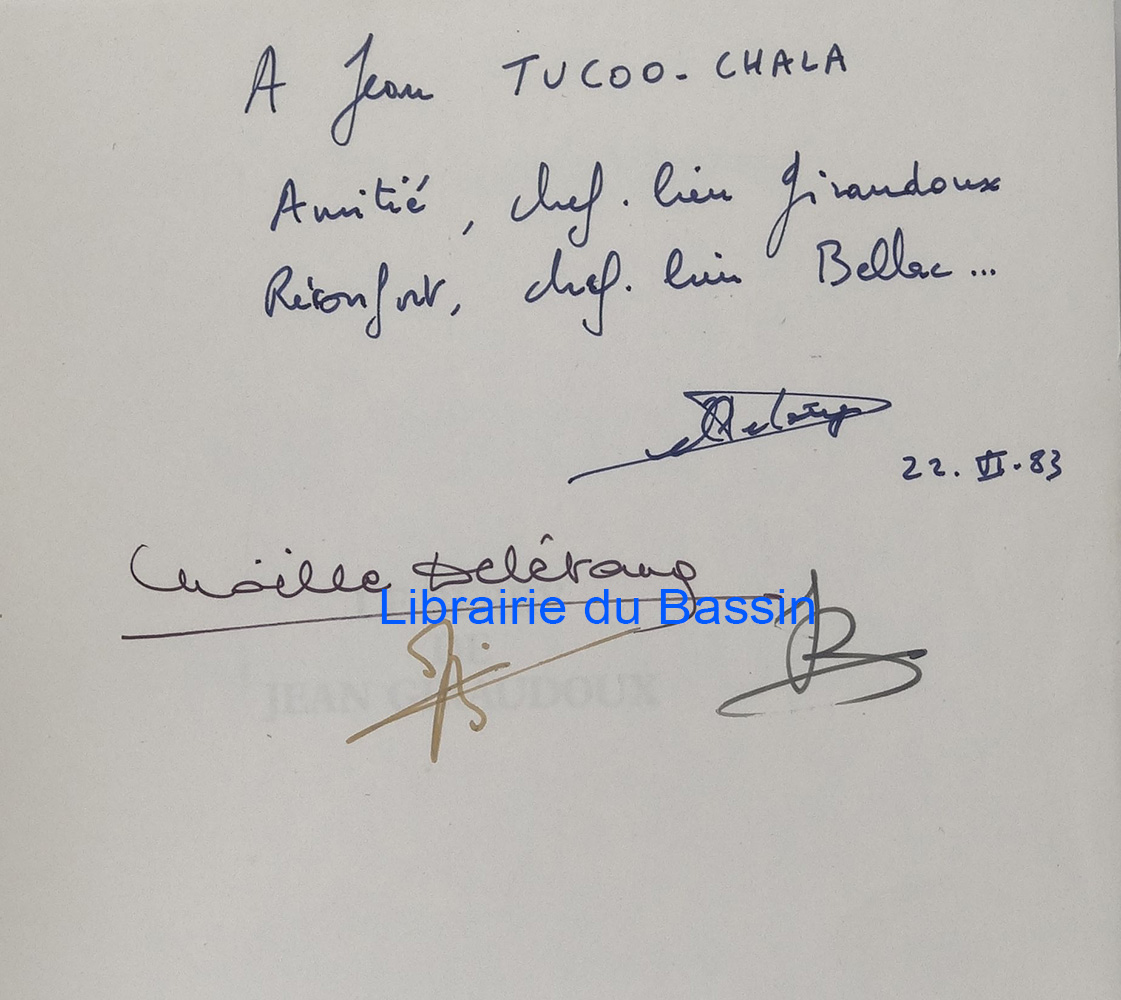 A Jean TUCOO-CHALA
Amitié, chef.lieu Giraudoux
Réconfort, chef.lieu Bellac...
22.VI.83
Delétang
Librairie du Bassin
JEAN GIRAUDOUX